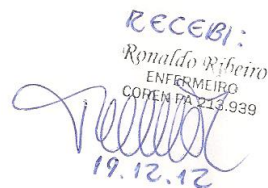 RECEBI:
Ronaldo Ribeiro
ENFERMEIRO
COREN PA 213.939
19.12.12